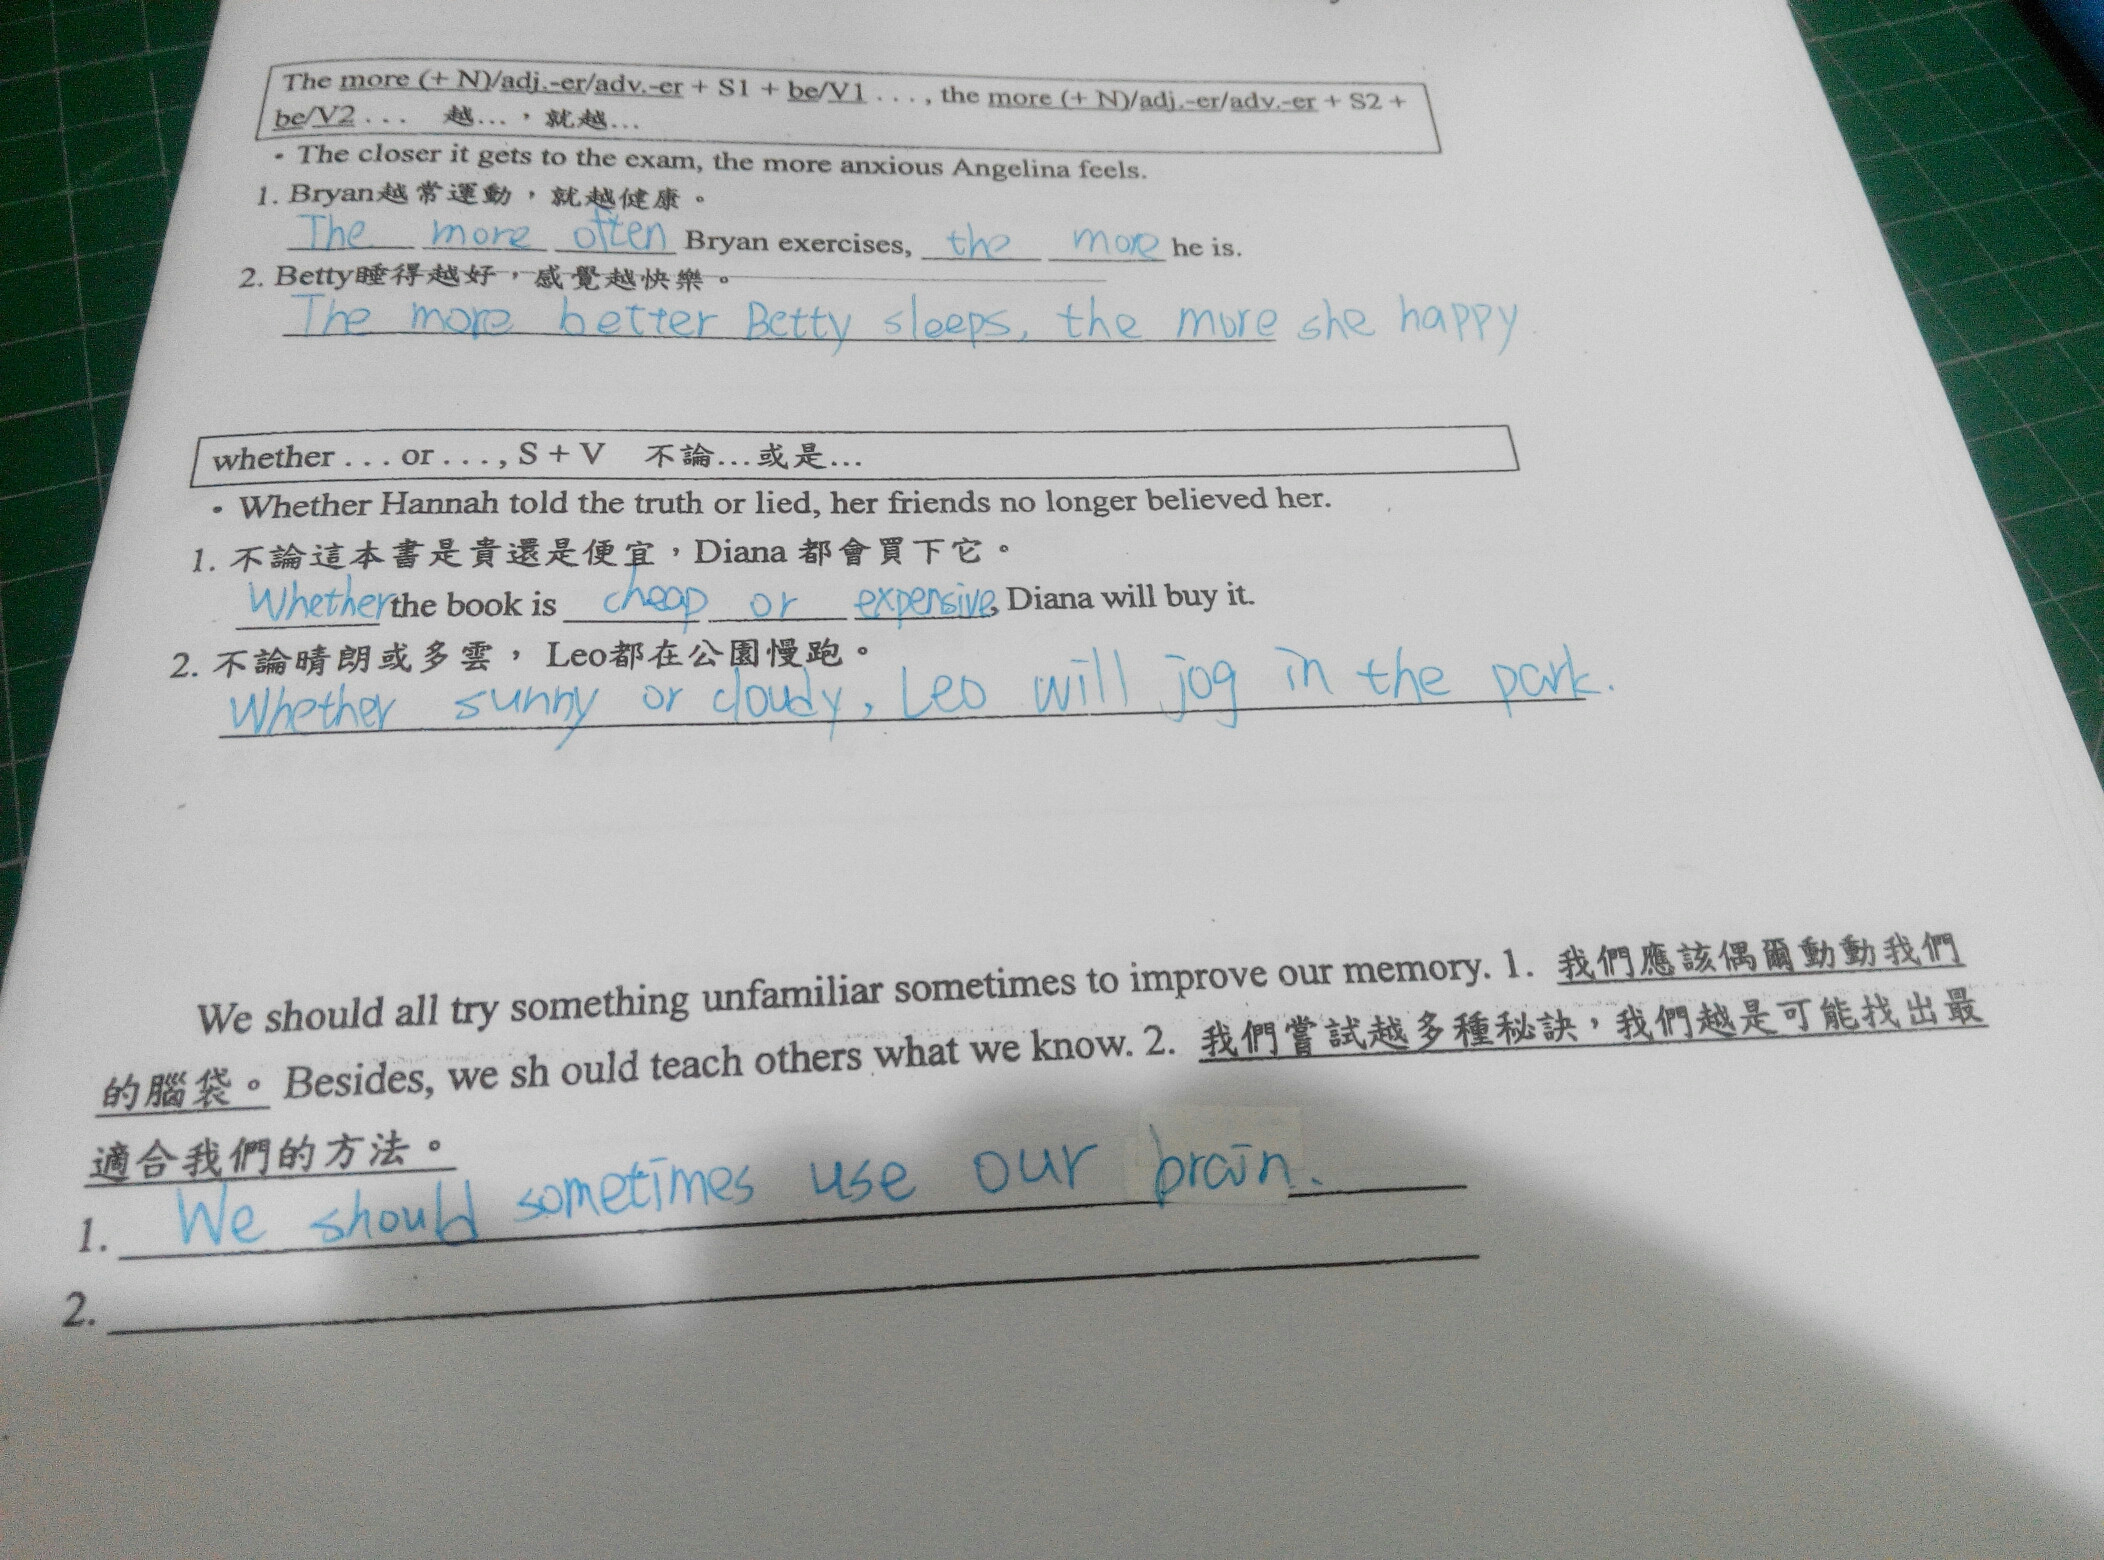 The more (+ N)/adj.-er/adv.-er + S1 + be/V1 . . . , the more (+ N)/adj.-er/adv.-er + S2 +
be/V2 . . . 越…，就越…
• The closer it gets to the exam, the more anxious Angelina feels.
1. Bryan越常運動，就越健康。
The more often Bryan exercises, the more he is.
2. Betty睡得越好，感覺越快樂。
The more better Betty sleeps, the more she happy
whether . . . or . . . , S + V 不論…或是…
• Whether Hannah told the truth or lied, her friends no longer believed her.
1. 不論這本書是貴還是便宜，Diana 都會買下它。
Whether the book is cheap or expensive, Diana will buy it.
2. 不論晴朗或多雲， Leo都在公園慢跑。
Whether sunny or cloudy, Leo will jog in the park.
We should all try something unfamiliar sometimes to improve our memory. 1. 我們應該偶爾動動我們
的腦袋。 Besides, we sh ould teach others what we know. 2. 我們嘗試越多種秘訣，我們越是可能找出最
適合我們的方法。
1. We should sometimes use our brain.
2.